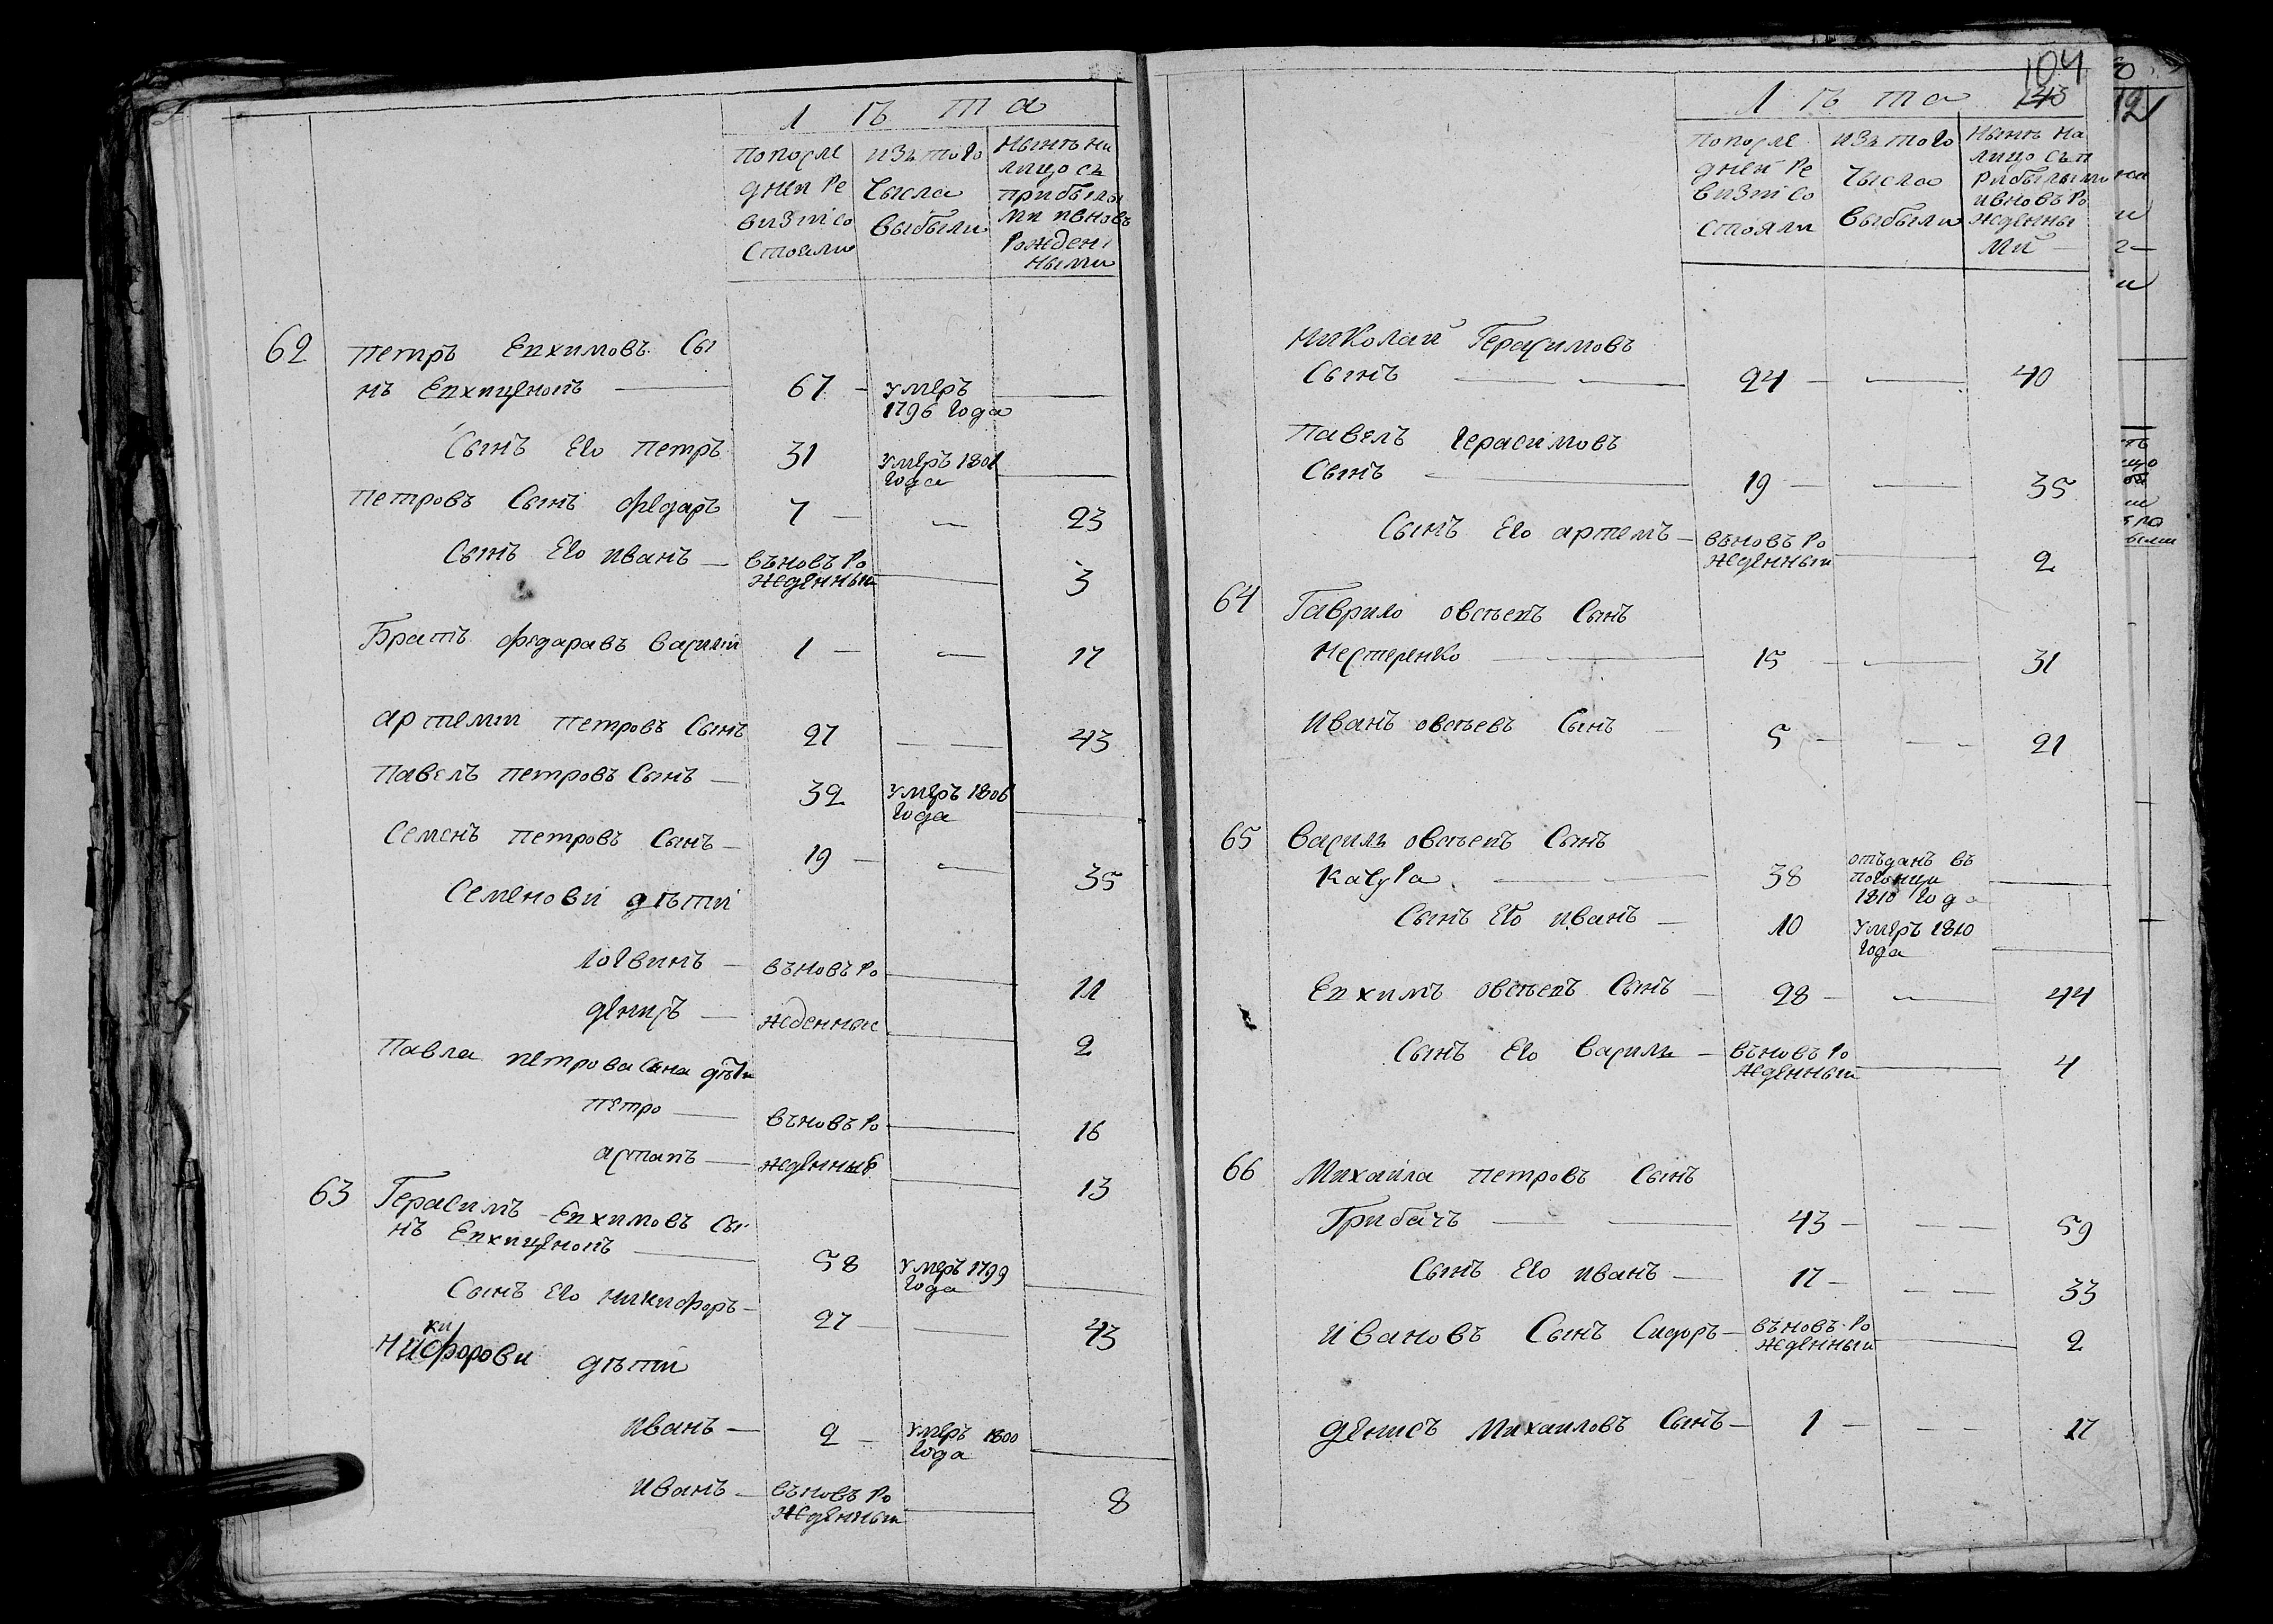 Лѣта
попосле
дней ре
визіи со
стояли
изътого
числа
выбыли
Нынѣ на
лицо съ
прибылы
ми ивновъ
рожден
ными
62
петръ Евхимовъ Сы
нъ Евхименопъ 67 умеръ
1796 года
Сынъ Его петръ 31 умеръ 1801
года
петровъ Сынъ федаръ 7 23
Сынъ Его иванъ въновъ ро
жденный 3
Братъ федаравъ василій 1 17
артемій петровъ Сынъ 27 43
павелъ петровъ Сынъ 32 умеръ 1806
года
Семенъ петровъ Сынъ 19 35
Семенови дѣти
логвинъ въновъ ро 11
денисъ жденные 2
павла петрова сына дѣти
петро въновъ ро 16
астапъ жденные 13
63 Герасимъ Евхимовъ Сы
нъ 58 умеръ 1799
года
Сынъ Его никифоръ 27 43
ки
Нифорови дѣти
иванъ 2 умеръ 1800
года
иванъ въновъ ро
жденный 8
104
143
Лѣта
попосле
дней ре
визіи со
стояли
изътого
числа
выбыли
Нынѣ на
лицо съп
рибылыми
ивновъ ро
жденны
ми
николай Герасимовъ
Сынъ 24 40
павелъ герасимовъ
Сынъ 19 35
Сынъ Его артемъ въновъ ро
жденный 2
64 Гаврило овсѣевъ Сынъ
нестеренко 15 31
иванъ овсѣевъ Сынъ 5 21
65 василь овсѣевъ Сынъ
38 отъданъ въ
1810 года
Сынъ Его иванъ 10 умеръ 1810
года
Евхимъ овсѣевъ Сынъ 28 44
Сынъ Его василь въновъ ро
жденный 4
66 Михайла петровъ Сынъ
Грибачъ 43 59
Сынъ Его иванъ 17 33
ивановъ Сынъ Сидоръ въновъ ро
жденный 2
денисъ Михаиловъ Сынъ 1 17